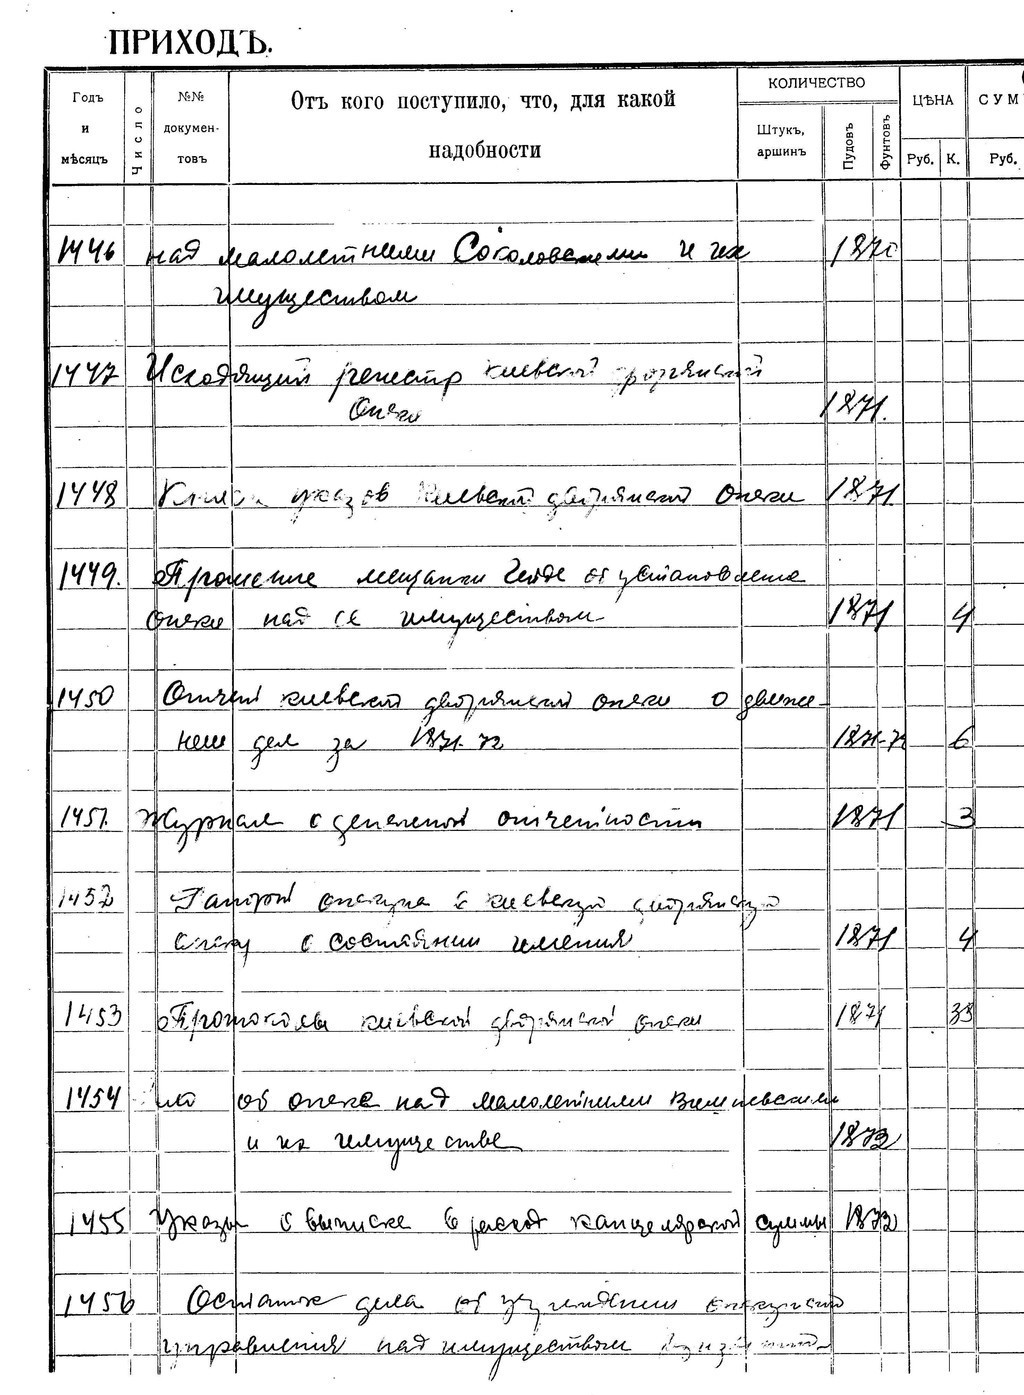 ПРИХОДЪ.
Годъ и мѣсяцъ
Число
№№ докумен-товъ
Отъ кого поступило, что, для какой надобности
КОЛИЧЕСТВО
Штукъ, аршинъ
Пудовъ
Фунтовъ
ЦѢНА
Руб. К.
СУМ
Руб.
1446 над малолетними Соколовскими и их 1870
имуществом
1447 Исходящий регистр киевской дворянской
опеки 1871.
1448 Книга указов киевской дворянской опеки 1871
1449. Прошение мещанки о установлении
опеки над ее имуществом 1871 4
1450 Отчет киевской дворянской опеки о движе-
нии дел за 1871-72 1871-72 6
1451 Журнал о денежной отчетности 1871 3
1452 Рапорт опекуна в киевскую дворянскую
опеку о состоянии имения 1871 4
1453 Протоколы киевской дворянской опеки 1871 33
1454 об опеке над малолетними
и их имуществе 1872
1455 Указы о выписке в расход канцелярской суммы 1872
1456 Остаток дела об учреждении опекунского
управления над имуществом